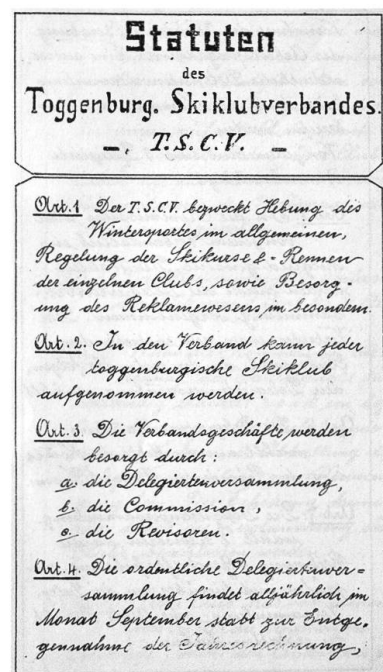 Statuten
des
Toggenburg. Skiklubverbandes.
–. T.S.C.V. –
Art. 1 Der T.S.C.V. bezweckt Hebung des
Wintersportes im allgemeinen,
Regelung der Skikurse & - Rennen
der einzelnen Clubs, sowie Besorg-
ung des Reklamewesens, im besondern.
Art. 2. In den Verband kann jeder
toggenburgische Skiklub
aufgenommen werden.
Art. 3. Die Verbandsgeschäfte werden
besorgt durch:
a. die Delegiertenversammlung,
b. die Commission,
c. die Revisoren.
Art. 4. Die ordentliche Delegiertenver=
sammlung findet alljährlich im
Monat September statt zur Entge-
gennahme der Jahresrechnung,